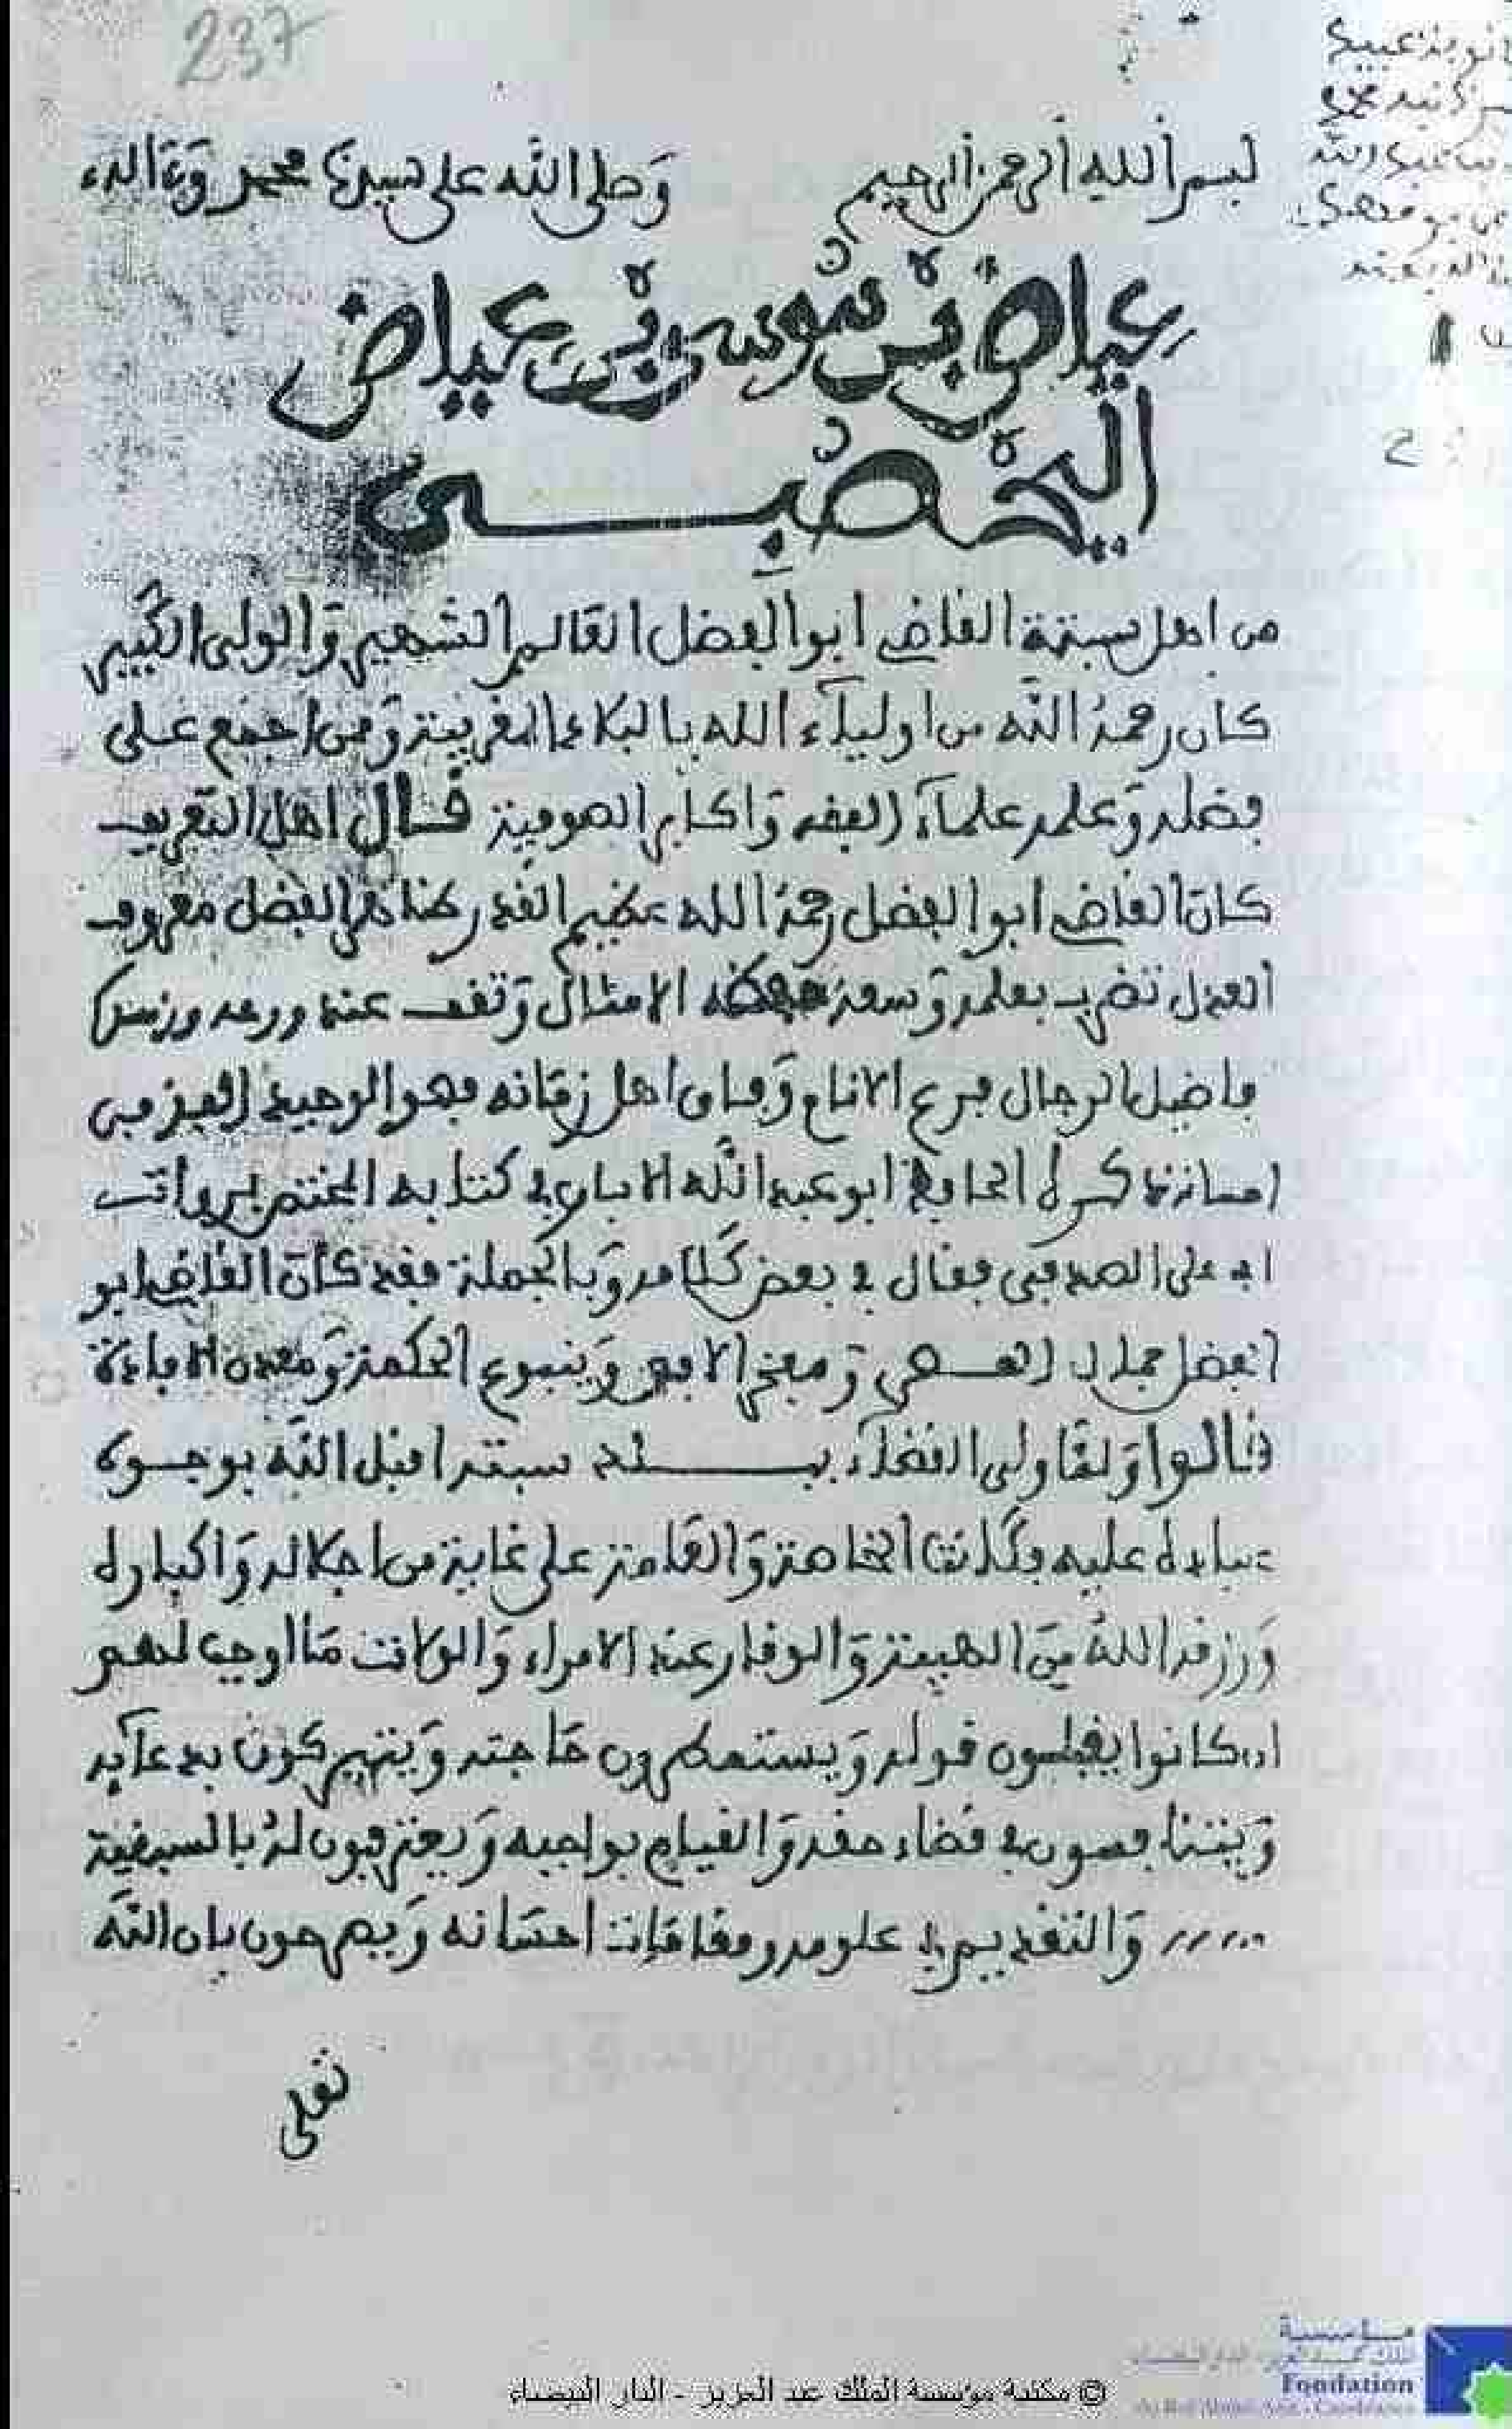 237
بسم الله الرحمن الرحيم وصلى الله على سيدنا محمد وءاله
عياض بن موسى بن عياض
اليحصبي
من اهل سبتة القاضي ابو الفضل العالم الشهير والولي الكبير
كان رحمه الله من اولياء الله بالبلاد المغربية ومن اجمع على
فضله وعلمه علماء الفقه واكابر الصوفية قال اهل التعريف
كان القاضي ابو الفضل رحمه الله عظيم القدر ظاهر الفضل معروف
العدل تضرب بعلمه وسعة حفظه الامثال وتقف عند ورعه
فاضل الرجال فرع الانام وفاق اهل زمانه فهو الوحيد الفذ في
ذكره الحافظ ابو عبد الله الابار في كتابه المختتم
ابي علي الصدفي فقال في بعض كلامه وبالجملة فقد كان القاضي ابو
الفضل جمال العصر ومفخر الافق وينبوع الحكمة ومعدن الافادة
قالوا ولما ولي القضاء ببلده سبتة اقبل الله بوجوه
عباده عليه وكانت الخاصة والعامة على غاية من اجلاله واكباره
ورزقه الله من الهيبة والوقار عند الامراء والولات ما اوجب لهم
ان كانوا يعظمون قوله ويستمطرون حاجته ويتبركون بدعآيه
ويتنافسون في قضاء حقه والقيام بواجبه ويعترفون له بالسبقية
والتقديم في علومه ومقامات احسانه ويصرحون بان الله
تعلى
© مكتبة مؤسسة الملك عبد العزيز - الدار البيضاء
مؤسسة
Fondation